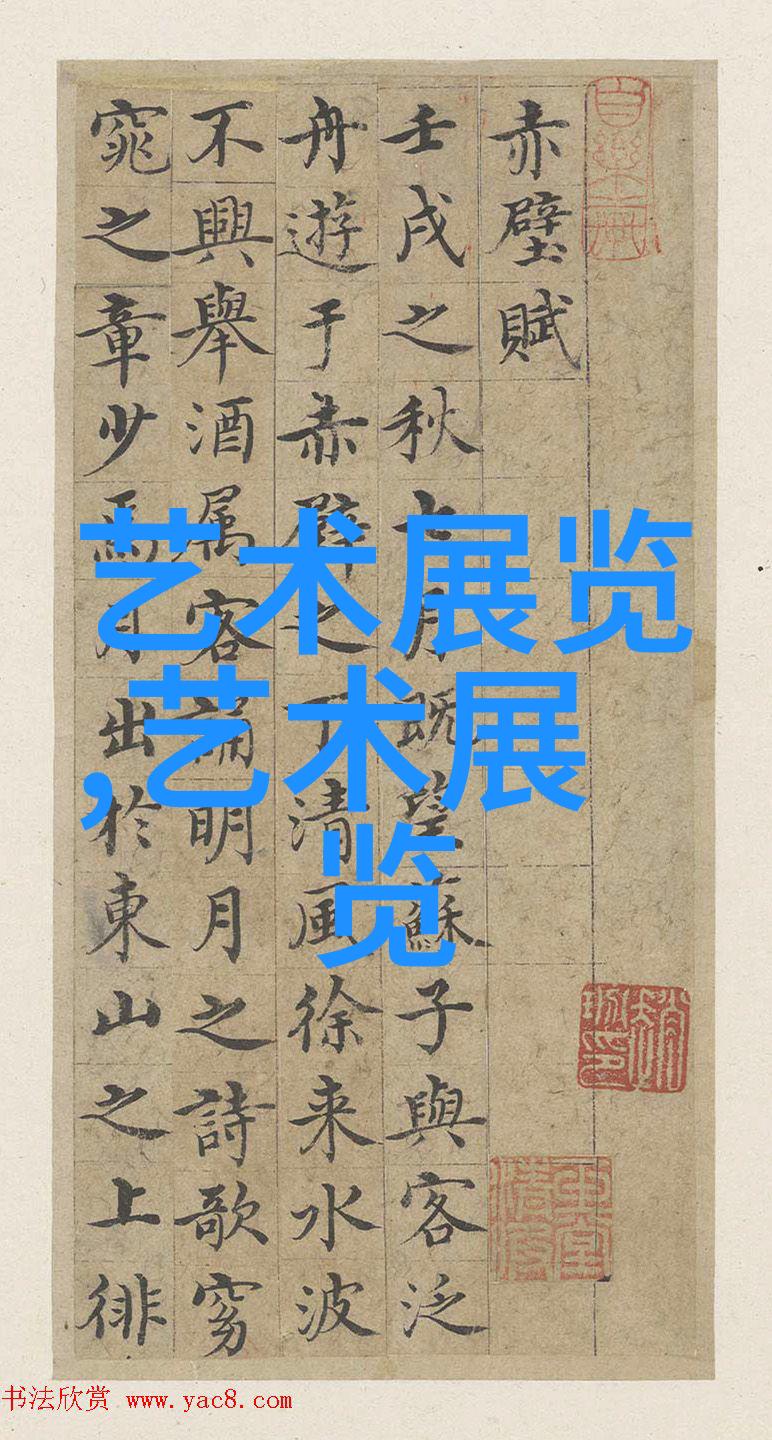 赤壁賦
壬戌之秋七月既望蘇子與客泛
舟遊于赤壁之下清風徐来水波
不興舉酒属客誦明月之詩歌窈
窕之章少焉月出於東山之上徘
艺术展览
,艺术展
览
书法欣赏 www.yac8.com